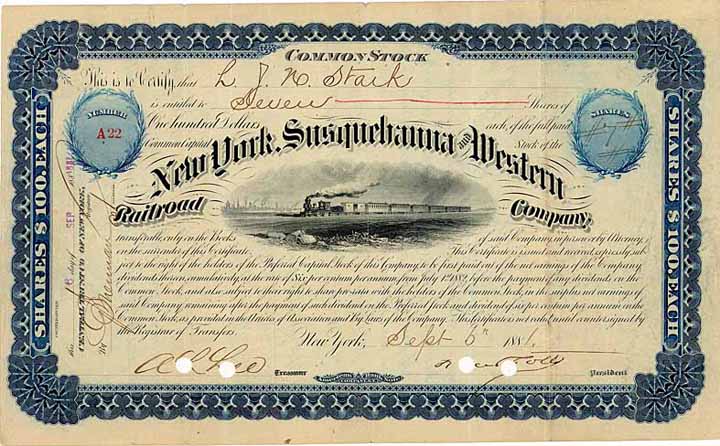 COMMON STOCK
This is to Certify, that L J N Stark
is entitled to Seven Shares of
NUMBER
A 22
SHARES
One hundred Dollars each, of the full paid
Common Capital Stock of the
New York, Susquehanna and Western
Railroad Company,
transferable only on the Books of said Company in person or by Attorney,
on the surrender of this Certificate. This Certificate is issued and received, expressly sub-
ject to the right of the holders of the Preferred Capital Stock of this Company, to be first paid out of the net earnings of the Company,
Dividends thereon, annually, at the rate of Six per centum per annum from July 1st 1881, before the payment of any dividends on the
Common Stock, and also subject to their right to share pro rata with the holders of the Common Stock, in any surplus net earnings of
said Company remaining after the payment of such dividend on the Preferred Stock and dividend of six per centum per annum on the
Common Stock, as provided in the Articles of Association and By Laws of the Company. This Certificate is not valid until countersigned by
the Registrar of Transfers.
New York, Sept 6th 1881.
Treasurer
President
SHARES $100. EACH
SHARES $100. EACH
this 6 day of SEP 1881
CENTRAL TRUST CO. OF NEW YORK,